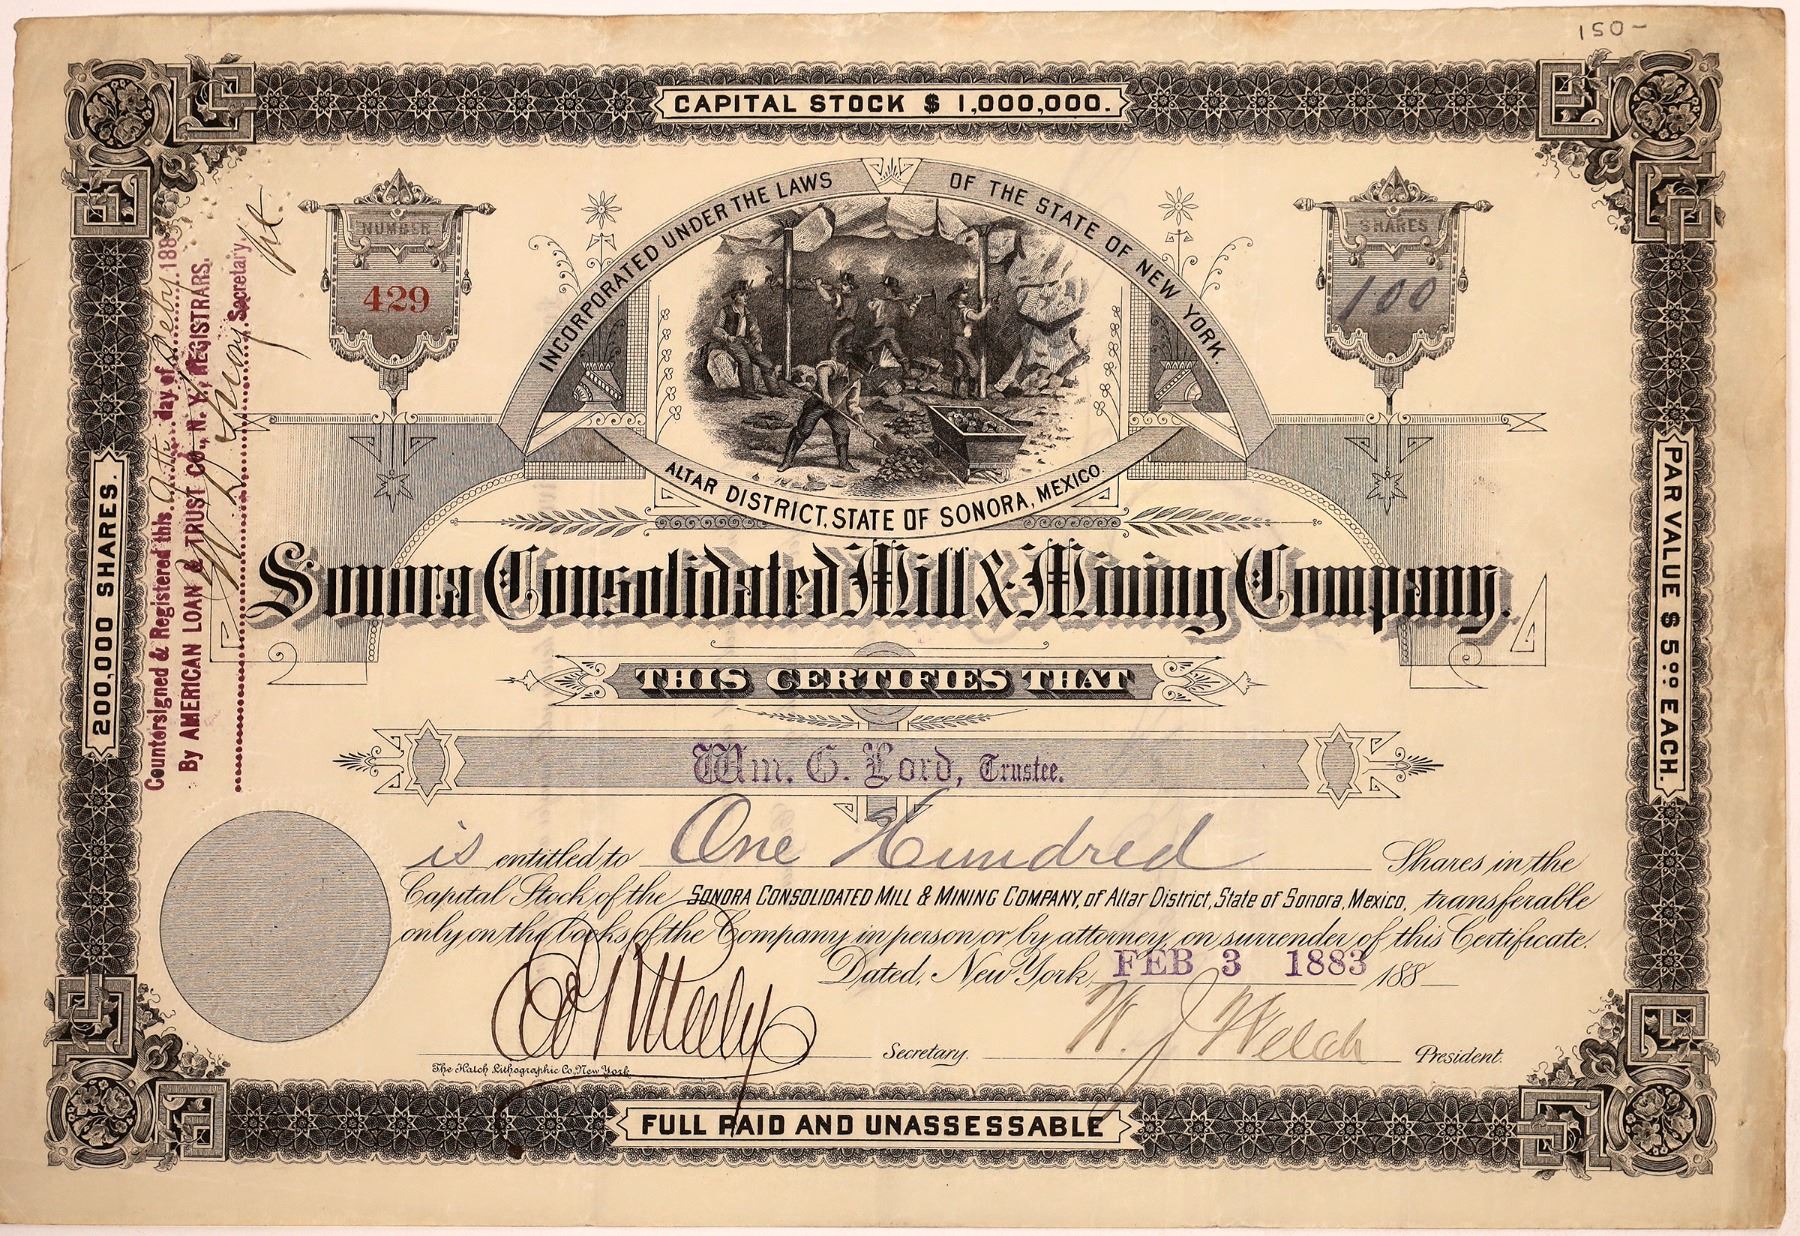 150-
CAPITAL STOCK $ 1,000,000.
NUMBER
429
INCORPORATED UNDER THE LAWS OF THE STATE OF NEW YORK.
SHARES
100
ALTAR DISTRICT, STATE OF SONORA, MEXICO.
200,000 SHARES.
Countersigned & Registered this 9th day of Feby. 188
By AMERICAN LOAN & TRUST Co., N. Y., REGISTRARS.
Secretary.
PAR VALUE $ 5.00 EACH.
Sonora Consolidated Mill & Mining Company.
THIS CERTIFIES THAT
Wm. G. Lord, Trustee.
is entitled to One Hundred Shares in the
Capital Stock of the SONORA CONSOLIDATED MILL & MINING COMPANY, of Altar District, State of Sonora, Mexico, transferable
only on the books of the Company in person or by attorney on surrender of this Certificate.
Dated, New York, FEB 3 1883 188
Secretary. W. J. Welch President.
The Hatch Lithographic Co, New York.
FULL PAID AND UNASSESSABLE